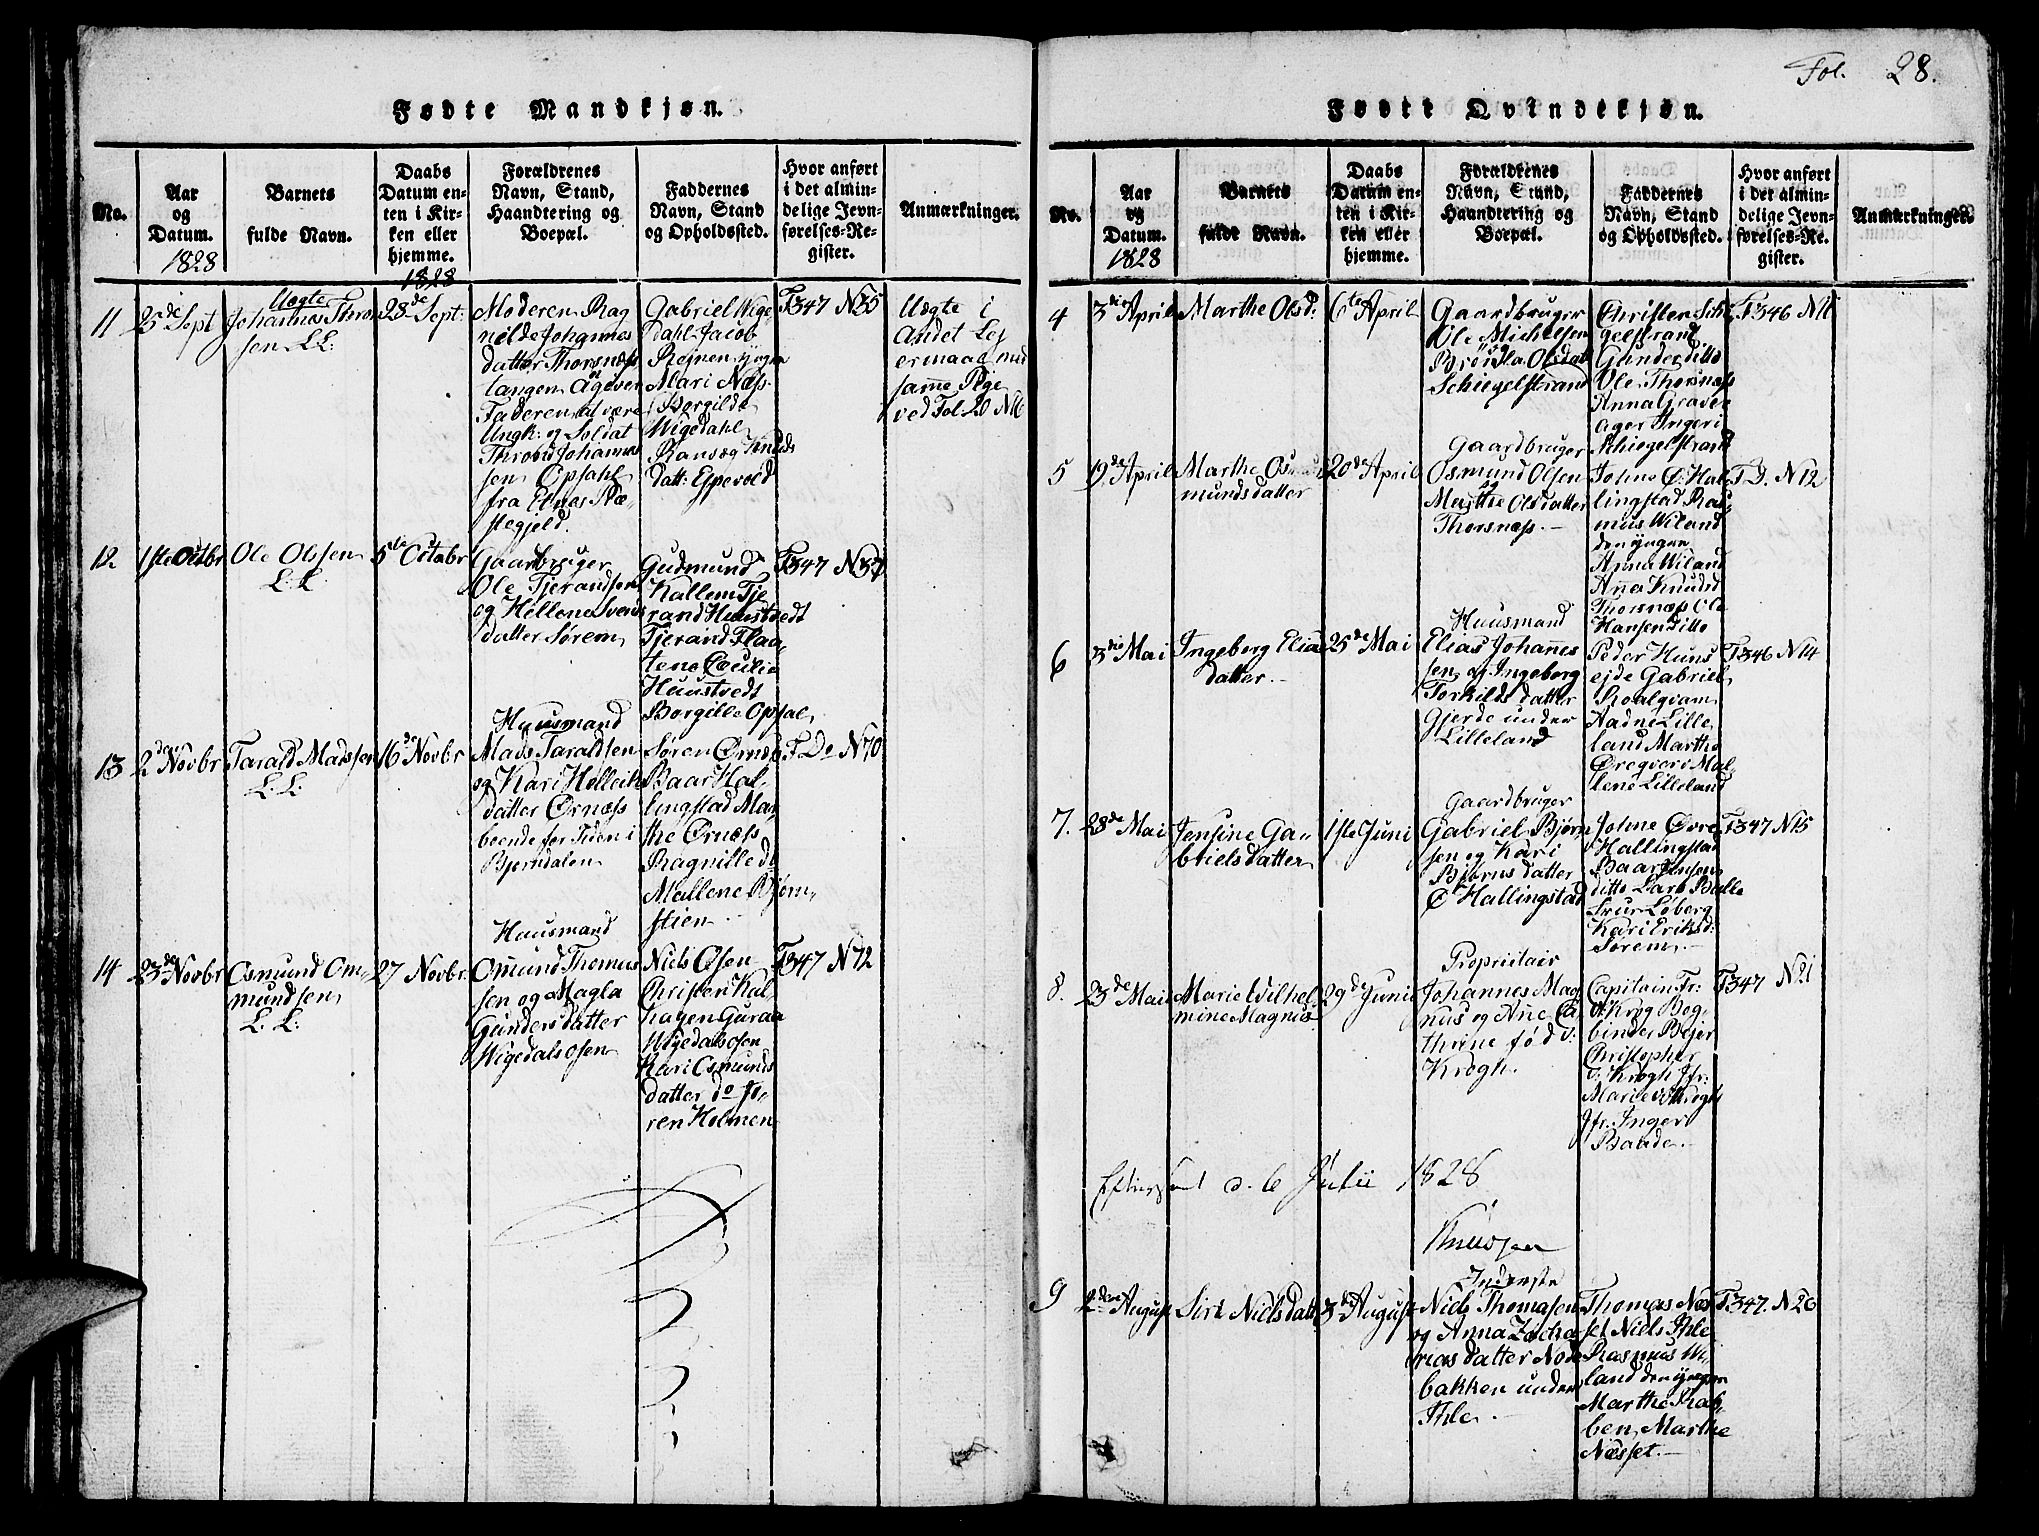 Fol. 28.
Fødte Mandkjøn.
No.
Aar
og
Datum.
1828
Barnets
fulde Navn.
Daabs
Datum en-
ten i Kir-
ken eller
hjemme.
1828
Forældrenes
Navn, Stand,
Haandtering og
Boepæl.
Faddernes
Navn, Stand
og Opholdssted.
Hvor anført
i det almin-
delige Jevn-
førelses-Re-
gister.
Anmærkninger.
11
25de Sept
Uægte
Johannes Thron
sen LL:
28de Sept:
Moderen Rag
nilde Johannes
datter Thorsnæs
tangen Agiver
Faderen at være
Ungk: og Soldat
Thrond Johannes
sen Opsahl
fra Etnes Præ
stegjeld.
Gabriel Wige
Dahl Jacob
Rejnen yngre
Mari Næs
Borgilde
Wigedahl
Knuds
Datt: Eppevold
F347 N35
Uægte i
Andet Lej
ermaal med
samme Pige
ved Fol 20 N16
12
1ste Octbr
Ole Olssen
L: L:
5te Octobr
Gaarbruger
Ole Tjerandsen
og Hellene Svens
datter Sørem
Gudmund
Kallem Tje
rand Huustvedt
Tjerand Flaa-
tene Cecilie
Huustvedt
Borgille Opsal
F347 N37
13
2den Novbr
Tarald Madssen
L: L:
16de Novbr
Huusmand
Mads Taraldsen
og Kari Helleiks
datter Ørnæss
beende for Tiden i
Bjerndalen
Søren Ørnæs
Baar Hal-
lingstad Mar
the Ørnæss
Ragnille d:
Mallene Bjørn-
stien
F. Do N70
14
23de Novbr
Osmund Om-
mundsen
L: L:
27 Novbr.
Huusmand
Omund Thomas
sen og Magla
Gunders datter
Wigedalsosen
Niels Osen
Christen Kal-
hagen Guraa
Wigedalsosen
Kari Osmunds
datter do Jo-
ren Holmen
F347 N72
Fødte Qvindekjøn.
No.
Aar
og
Datum.
1828
Barnets
fulde Navn.
Daabs
Datum en-
ten i Kir-
ken eller
hjemme.
Forældrenes
Navn, Stand,
Haandtering og
Boepæl.
Faddernes
Navn, Stand
og Opholdssted.
Hvor anført
i det almin-
delige Jevn-
førelses-Re-
gister.
Anmærkninger.
4
3die April
Marthe Olsd:
6te April
Gaardbruger
Ole Michelsen
og
Brøila Olsdat
Schiegelstrand
Christen Schi
gelstrand
Gunder ditto
Ole Thorsnæs
Anna Graver
ager Ingeri
Schiegelstrand
F346 N11
5
19de April
Marthe Os
munds datter
20de April
Gaardbruger
Osmund Olsen
og
Marthe Olsdatter
Thorsnæs.
Johne Ø: Hal
lingstad Ras
mus Wiland
den yngre
Anna Wiland
Anna Knudsd
Thorsnæs Ole
Hansen Ditto
F D. N12
6
3die Mai
Ingeborg Elias
datter
25de Mai
Huusmand
Elias Johannes
sen og Ingeborg
Torkilds datter
Gjerde under
Lilleland
Peder Huns
ejde Gabriel
Roalqvam
Aadne Lille
land Marthe
Øregveri Mal-
lene Lilleland
F346 N14
7.
28de Mai
Jensine Ga-
briels datter
1ste Juni
Gaardbruger
Gabriel Bjørn
sen og Kari
Bjørns datter
Ø Hallingstad
Johne Øvre
Hallingstad
Baar Jensen
ditto Lars Balle
Srur Løberg
Kari Eriksd:
Sørem
F347 N15
8.
23de Mai
Marie Wilhel
mine Magnus
29de Junii
Proprietair
Johannes Mag
nus og Ane Ca
thrine fød v:
Krogh.
Capitain Fr:
v Krog Bog-
binder Bejer
Christopher
v: Krogh Jfr:
Marie v: Krogh
Jfr. Inger
Baade.
F347 N21
Efterseet d. 6 Julii 1828
Knudsen
9
2den August
Siri Nielsdatt
3die August
Inderste
Niels Thomasen
og Anna Zacha
rias datter Node
bakken under
Ihle.
Thomas Næs
set Niels Ihle
Rasmus Wi-
land den yngre
Marthe Rab-
ben, Marthe
Næsset.
F347. N26